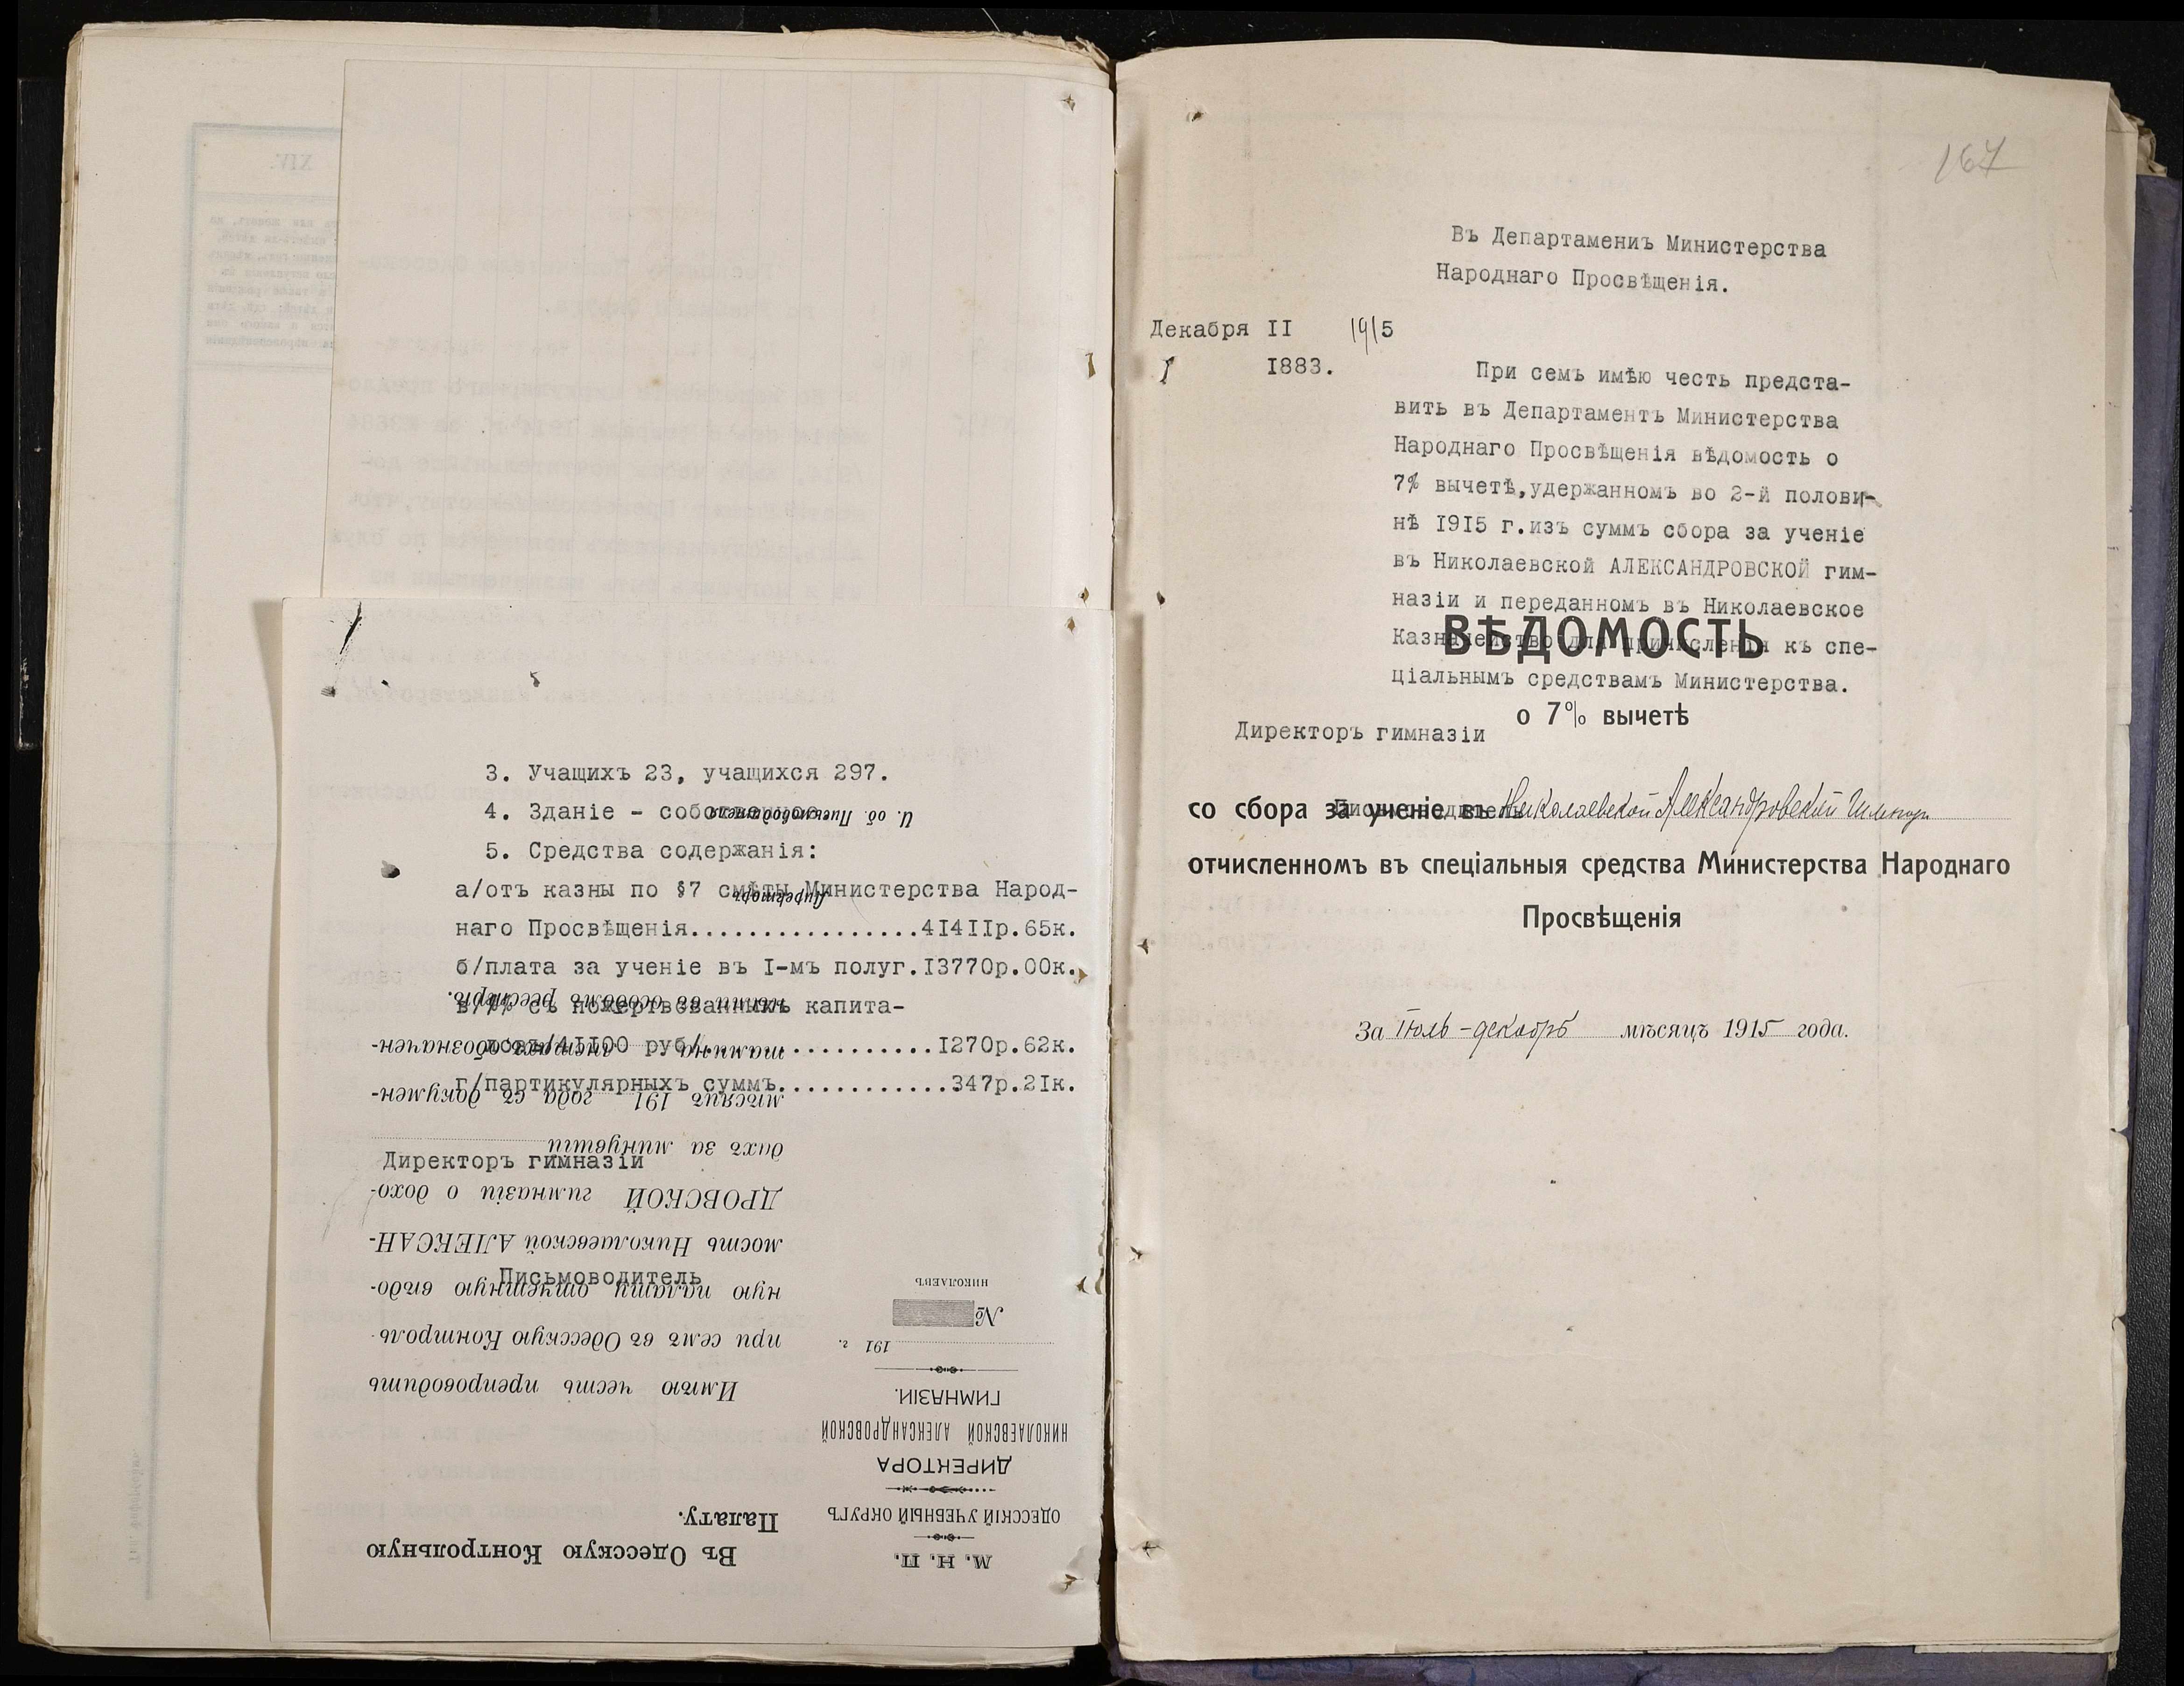 3. Учащихъ 23, учащихся 297.
4. Зданіе – собственное.
5. Средства содержанія:
а/отъ казны по §7 смѣты Министерства Народ-
наго Просвѣщенія................41411р.65к.
б/плата за ученіе въ I-мъ полуг.13770р.00к.
в/4% съ пожертвованныхъ капита-
ловъ/41100 руб/................1270р.62к.
г/партикулярныхъ суммъ............347р.21к.
Директоръ гимназіи
Письмоводитель
М. Н. П.
ОДЕССКІЙ УЧЕБНЫЙ ОКРУГЪ
ДИРЕКТОРА
НИКОЛАЕВСКОЙ АЛЕКСАНДРОВСКОЙ
ГИМНАЗІИ.
191 г.
№
НИКОЛАЕВЪ
Въ Одесскую Контрольную
Палату.
Имѣю честь препроводить
при семъ въ Одесскую Контроль-
ную палату отчетную вѣдо-
мость Николаевской АЛЕКСАН-
ДРОВСКОЙ гимназіи о дохо-
дахъ за минувшій
мѣсяцъ 191 года съ докумен-
тами на листахъ, обозначен-
ными въ особомъ реестрѣ.
Директоръ
И. об. Письмоводителя
XIV.
167
Въ Департамениъ Министерства
Народнаго Просвѣщенія.
Декабря II 1915
1883.
При семъ имѣю честь предста-
вить въ Департаментъ Министерства
Народнаго Просвѣщенія вѣдомость о
7% вычетѣ,удержанномъ во 2-й полови-
нѣ 1915 г.изъ суммъ сбора за ученіе
въ Николаевской АЛЕКСАНДРОВСКОЙ гим-
назіи и переданномъ въ Николаевское
Казначейство для причисленія къ спе-
ціальнымъ средствамъ Министерства.
Директоръ гимназіи
Письмоводитель
ВѢДОМОСТЬ
о 7% вычетѣ
со сбора за ученіе въ Николаевской Александровской
отчисленномъ въ спеціальныя средства Министерства Народнаго
Просвѣщенія
За Іюль – декабрь мѣсяцъ 1915 года.